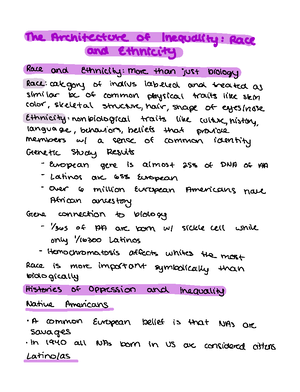 The Architecture of Inequality: Race
and Ethnicity
Race and Ethnicity: more than just biology
Race: category of indivs labeled and treated as
similar bc of common physical traits like skin
color, skeletal structure, hair, shape of eyes/nose
Ethnicity: nonbiological traits like culture, history,
language, behaviors, beliefs that provide
members w/ a sense of common identity
Genetic Study Results
- European gene is almost 25% of DNA of AA
- Latinos are 65% European
- Over 6 million European Americans have
African ancestry
Gene connection to biology
- of AA are born w/ sickle cell while
only Latinos
- Hemochromatosis affects whites the most
Race is more important symbolically than
biologically
Histories of Oppression and Inequality
Native Americans
• A common European belief is that NAs are
savages
• In 1940 all NAs born in US are considered citizens
Latino/as